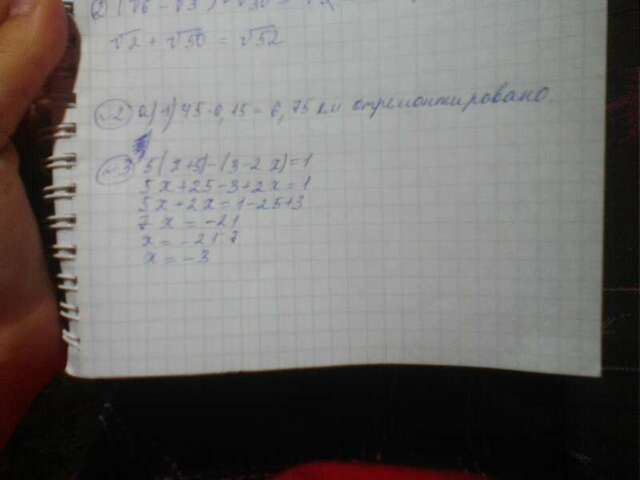 2) (√6 - √3) √30 = √2
√2 + √50 = √52
№2 а) 1) 45·0,15 = 6,75 км отремонтировано.
№3 5(x+5)-(3-2x)=1
5x+25-3+2x=1
5x+2x=1-25+3
7x = -21
x = -21:7
x = -3